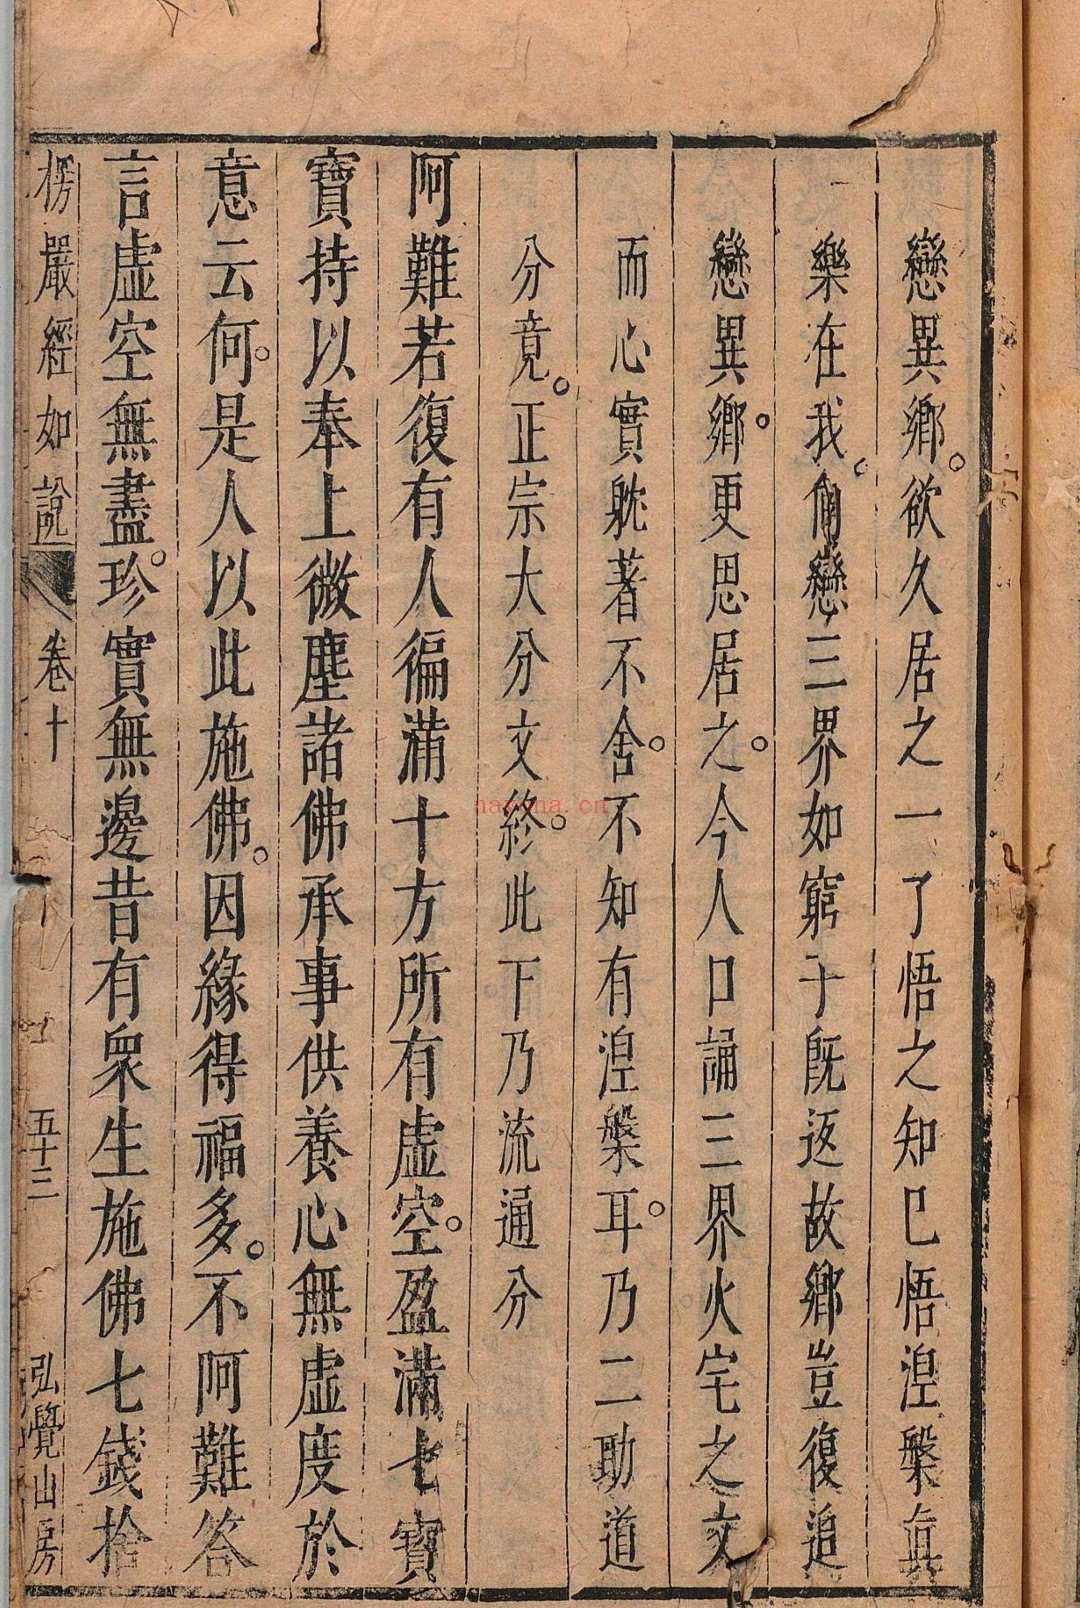 戀異鄉。欲久居之一了悟之知已悟涅槃真
樂在我。尚戀三界如窮子既返故鄉豈復追
戀異鄉。更思居之。今人口誦三界火宅之文
而心實躭著不舍。不知有涅槃耳。乃二助道
分竟。正宗大分文終。此下乃流通分
阿難若復有人徧滿十方所有虛空。盈滿七寶
寶持以奉上微塵諸佛承事供養心無虛度於
意云何。是人以此施佛。因緣得福多。不阿難答
言虛空無盡。珍寶無邊昔有眾生施佛七錢捨
楞嚴經如說 卷十 五十三 弘覺山房
nayona.cn